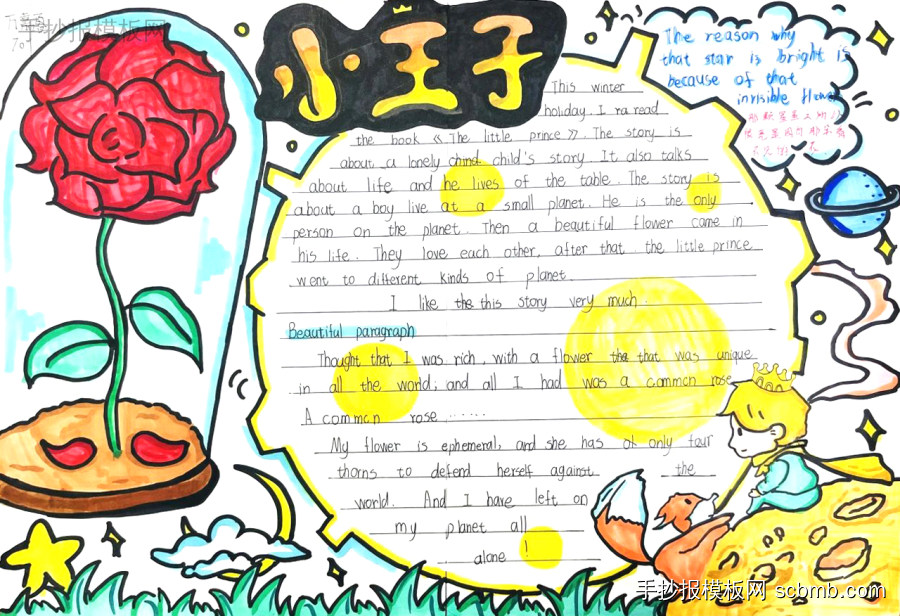 小王子
This winter
holiday. I ra read
the book 《The little prince》. The story is
about a lonely chind child's story. It also talks
about life and he lives of the table. The story is
about a boy live at a small planet. He is the only
person on the planet. Then a beautiful flower came in
his life. They love each other, after that the little prince
went to different kinds of planet.
I like the this story very much.
Beautiful paragraph
Thought that I was rich, with a flower tha that was unique
in all the world; and all I had was a common rose
A common rose ......
My flower is ephemeral, and she has of only four
thorns to defend herself against the
world. And I have left on
my planet all
alone !
The reason why
that star is bright is
because of that
invisible flower
手抄报模板网
手抄报模板网 scbmb.com